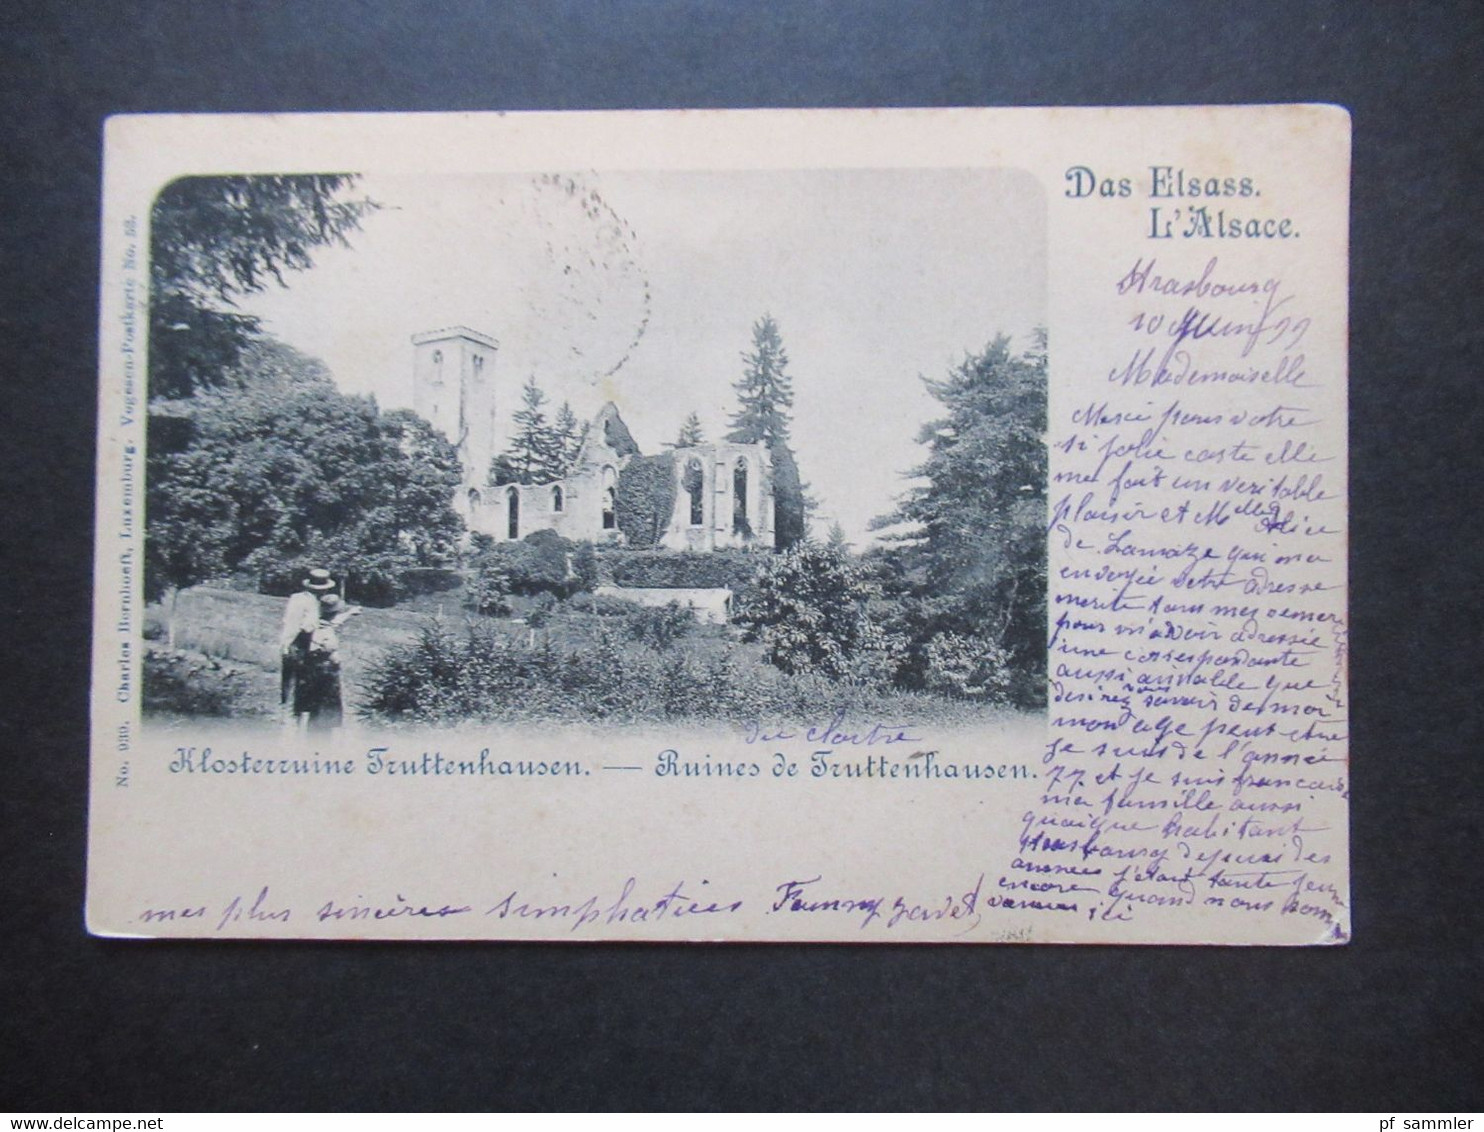 Das Elsass.
L'Alsace.
Strasbourg
10 Juin 99
Mademoiselle
Merci pour votre
si jolie carte elle
me fait un veritable
plaisir et Melle Alice
de Lamaze qui m'a
envoyée votre adresse
merite tous mes remer
pour m'avoir adressée
une correspondante
aussi aimable que
desirez vous savoir de moi
mon age peut etre
je suis de l'année
77. et je suis francaise
ma famille aussi
quoique habitant
Strasbourg depuis des
annees j'étais toute jeune
encore quand nous sommes
venus ici
du cloitre
Klosterruine Truttenhausen. — Ruines de Truttenhausen.
mes plus sincères simphaties Fanny
No. 930. Charles Bernhoeft, Luxemburg. Vogesen-Postkarte No. 53.
pf_sammler